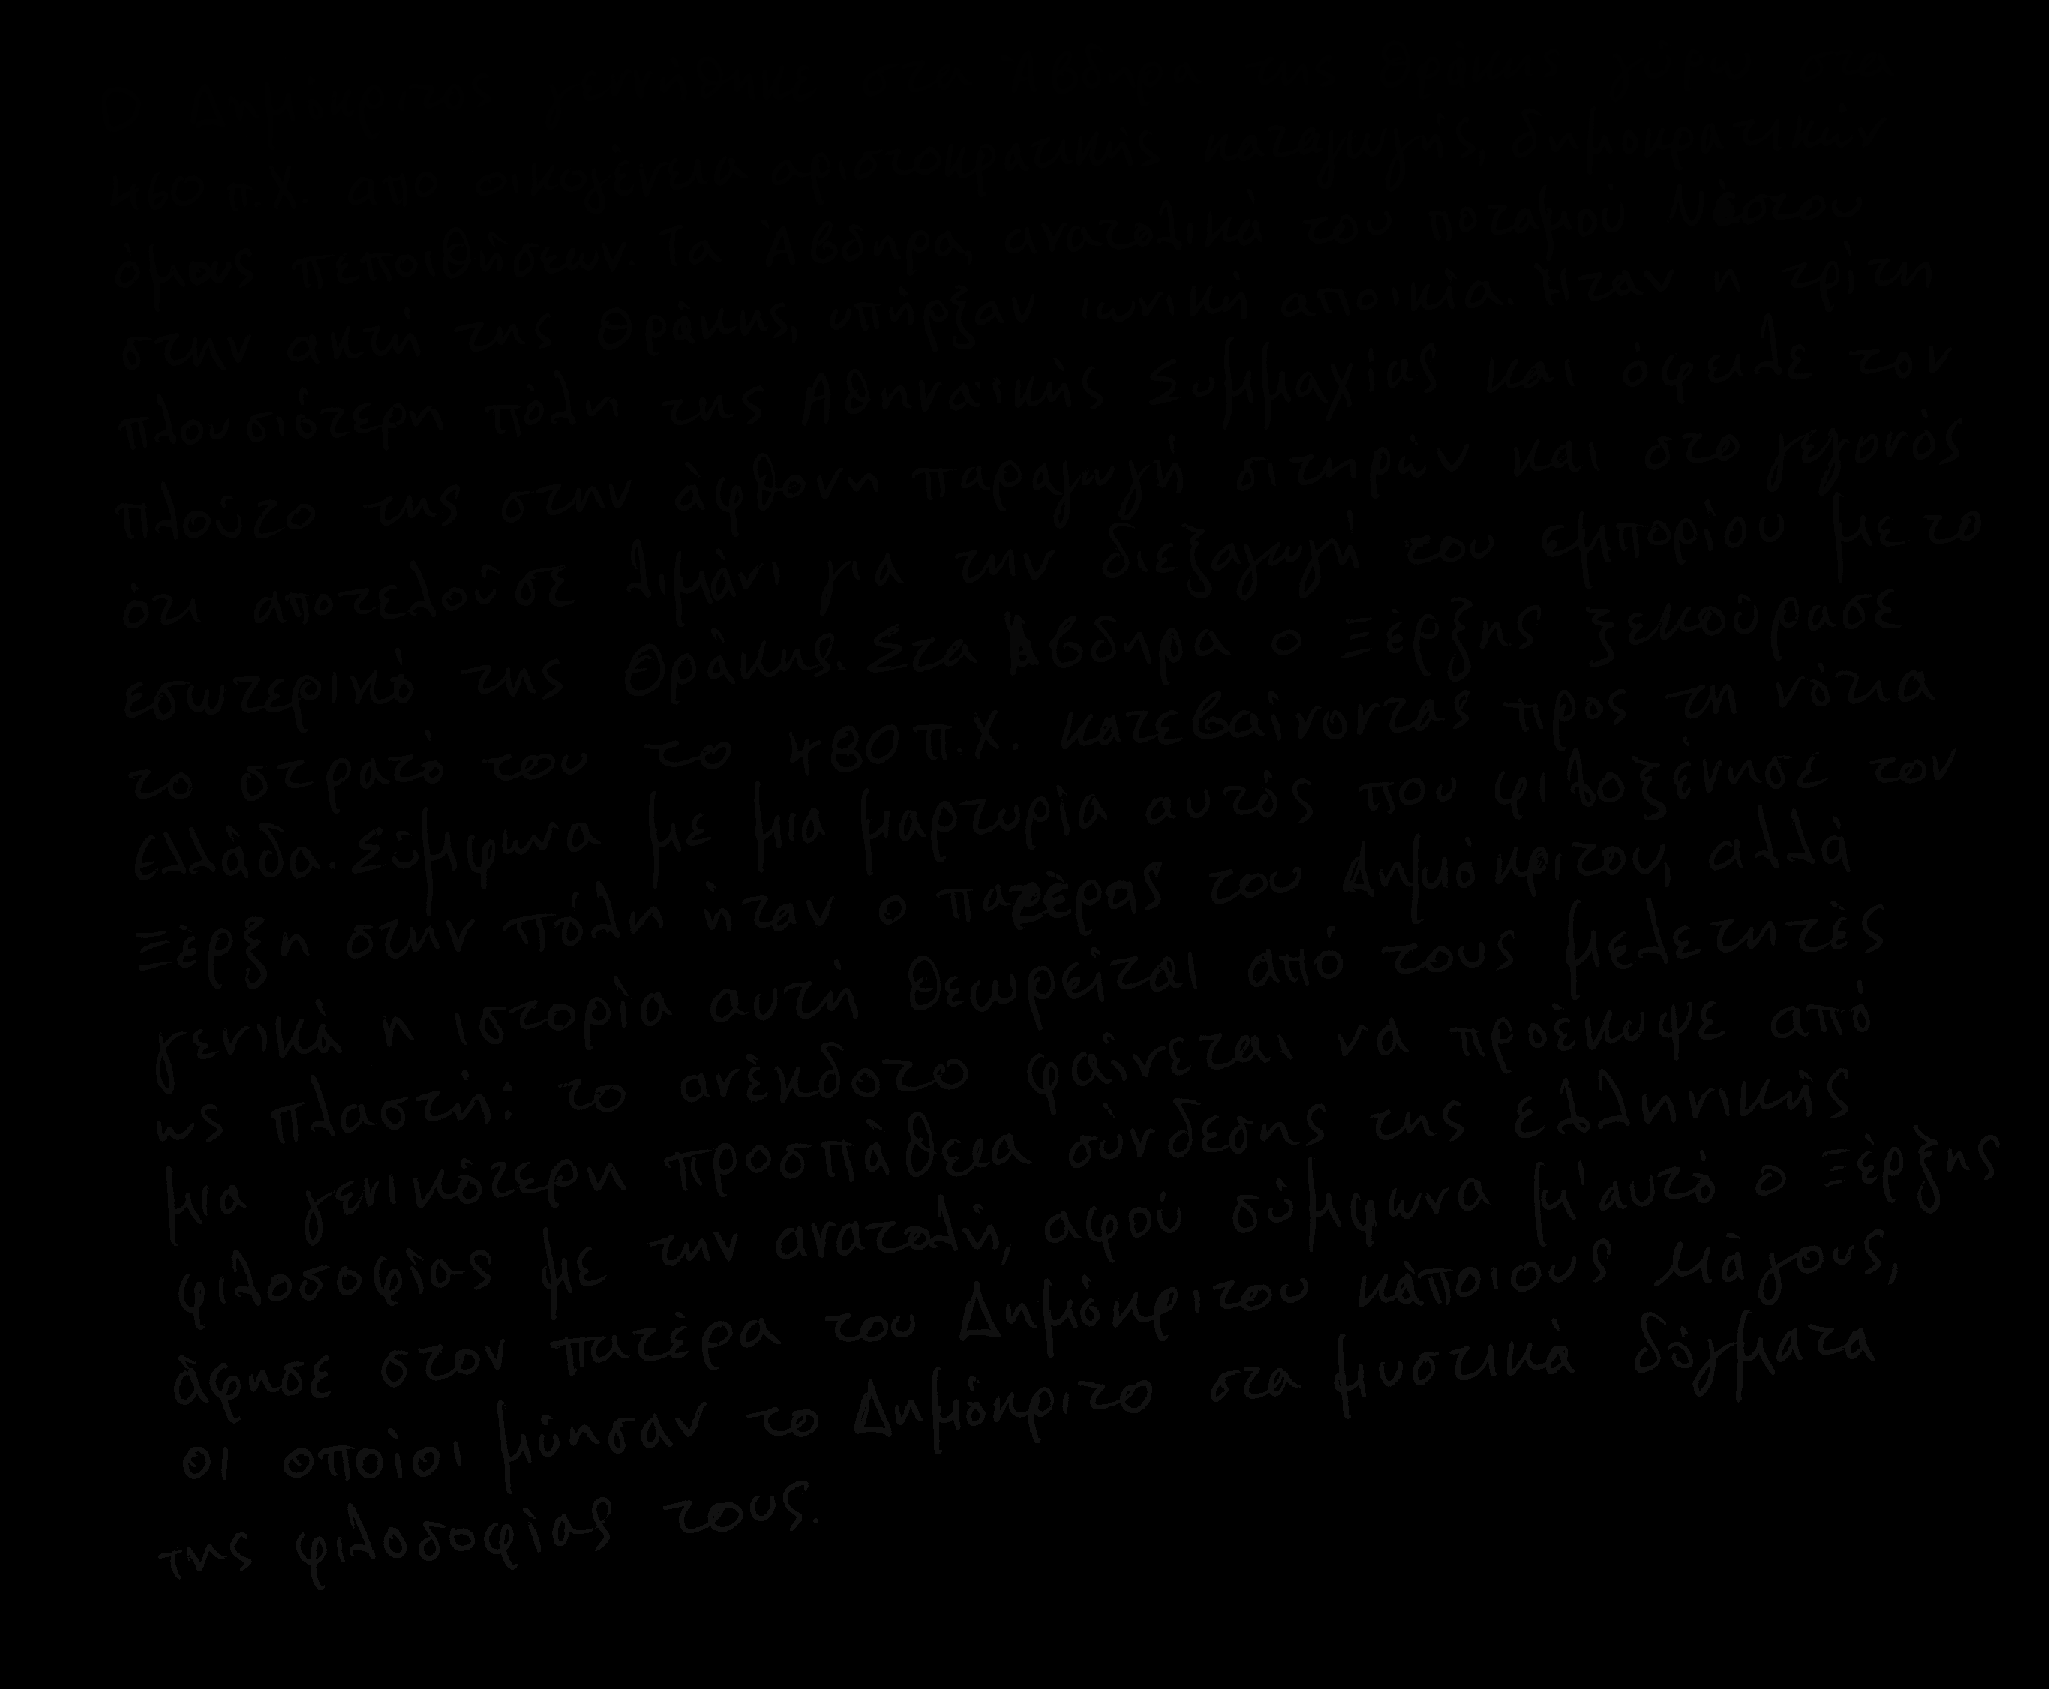 Ο Δημόκριτος γεννήθηκε στα Άβδηρα της Θράκης γύρω στο
460 π.Χ. από οικογένεια αριστοκρατικής καταγωγής, δημοκρατικών
όμως πεποιθήσεων. Τα Άβδηρα, ανατολικά του ποταμού Νέστου
στην ακτή της Θράκης, υπήρξαν ιωνική αποικία. Ήταν η τρίτη
πλουσιότερη πόλη της Αθηναϊκής Συμμαχίας και όφειλε τον
πλούτο της στην άφθονη παραγωγή σιτηρών και στο γεγονός
ότι αποτελούσε λιμάνι για την διεξαγωγή του εμπορίου με το
εσωτερικό της Θράκης. Στα Άβδηρα ο Ξέρξης ξεκούρασε
το στρατό του το 480 π.Χ. κατεβαίνοντας προς τη νότια
Ελλάδα. Σύμφωνα με μια μαρτυρία αυτός που φιλοξένησε τον
Ξέρξη στην πόλη ήταν ο πατέρας του Δημόκριτου, αλλά
γενικά η ιστορία αυτή θεωρείται από τους μελετητές
ως πλαστή: το ανέκδοτο φαίνεται να προέκυψε από
μια γενικότερη προσπάθεια σύνδεσης της ελληνικής
φιλοσοφίας με την ανατολή, αφού σύμφωνα μ'αυτό ο Ξέρξης
άφησε στον πατέρα του Δημόκριτου κάποιους Μάγους,
οι οποίοι μύησαν το Δημόκριτο στα μυστικά δόγματα
της φιλοσοφίας τους.